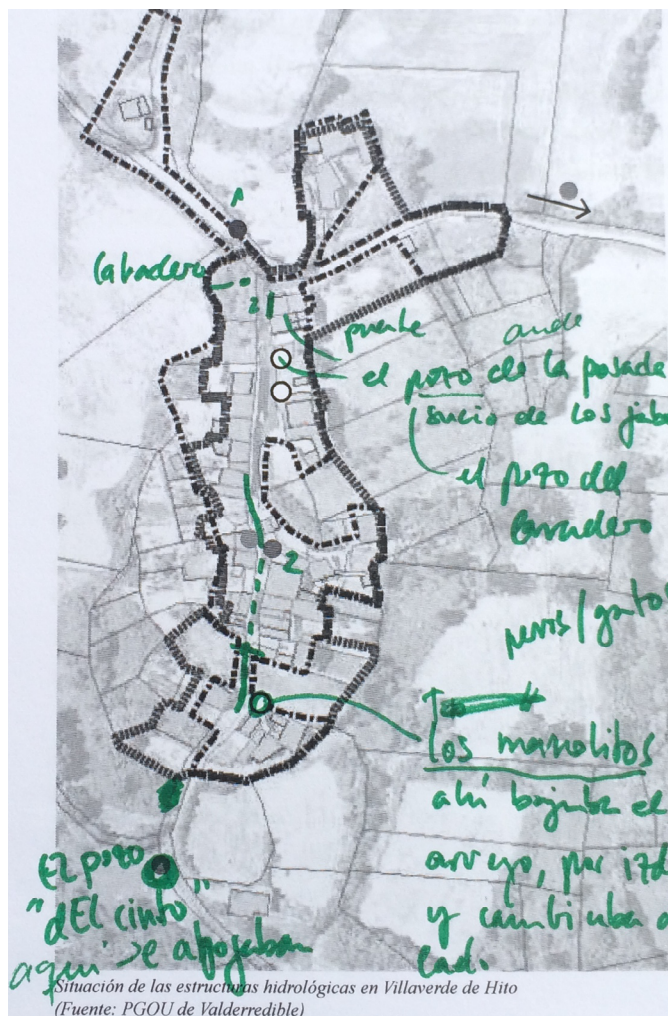 1
labadero
2
puente
ande
el pozo de la posada
sucio de los jab
el pozo del
lavadero
2
perros / gatos
los manolitos
ahí bajaba el
arroyo, por izd
y cambiaba d
cad.
El pozo
"del cinto"
aquí se ahogaban
Situación de las estructuras hidrológicas en Villaverde de Hito
(Fuente: PGOU de Valderredible)